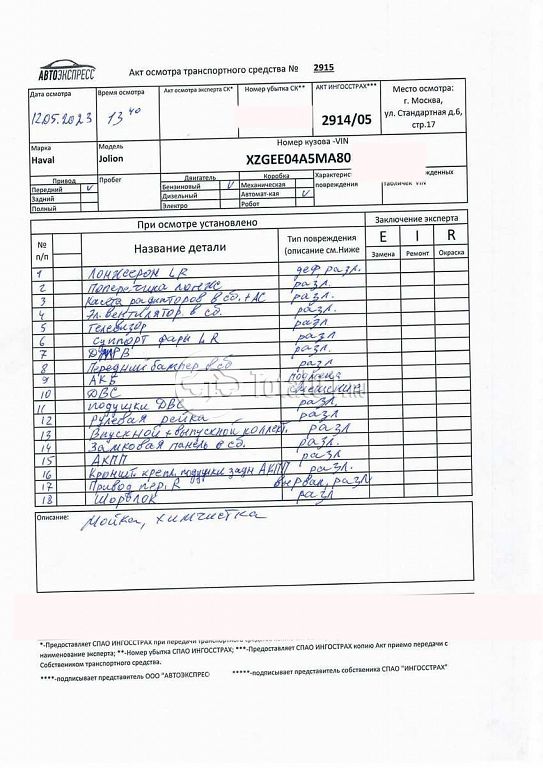 АВТОЭКСПРЕСС
Акт осмотра транспортного средства № 2915
Дата осмотра
Время осмотра
Акт осмотра эксперта СК*
Номер убытка СК**
АКТ ИНГОССТРАХ***
Место осмотра:
г. Москва,
ул. Стандартная д.6,
стр.17
12.05.2023
13 40
2914/05
Марка
Haval
Модель
Jolion
Номер кузова -VIN
XZGEE04A5MA80
Привод
Передний V
Задний
Полный
Пробег
Двигатель
Бензиновый V
Дизельный
Электро
Коробка
Механическая
Автомат-кая V
Робот
Характерис
повреждения
жденных
табличек VIN
При осмотре установлено
Заключение эксперта
№ п/п
Название детали
Тип повреждения
(описание см.Ниже
E I R
Замена Ремонт Окраска
1 Лонжерон LR деф. разл.
2 Поперечина лонж разл.
3 Касета радиаторов в сб. + АС разл.
4 Эл. вентилятор в сб разл.
5 Телевизор разл
6 суппорт фары LR разл
7 ДМРВ разл
8 Передний бампер в сб разл.
9 АКБ
10 ДВС смещение
11 подушки ДВС разл.
12 Рулевая рейка разл
13 Впускной + выпускной коллект. разл.
14 Замковая панель в сб. разл.
15 АКПП разл.
16 Кроншт. крепл. подушки задн АКПП разл.
17 Привод пер. R вырван, разл
18 Шорблок разл
Описание: Мойка, химчистка
*-Предоставляет СПАО ИНГОССТРАХ при передаче
наименование эксперта; **-Номер убытка СПАО ИНГОССТРАХ; ***-Предоставляет СПАО ИНГОССТРАХ копию Акт приемо передачи с
Собственником транспортного средства.
****-подписывает представитель ООО "АВТОЭКСПРЕС
*****-подписывает представитель собственика СПАО "ИНГОССТРАХ"